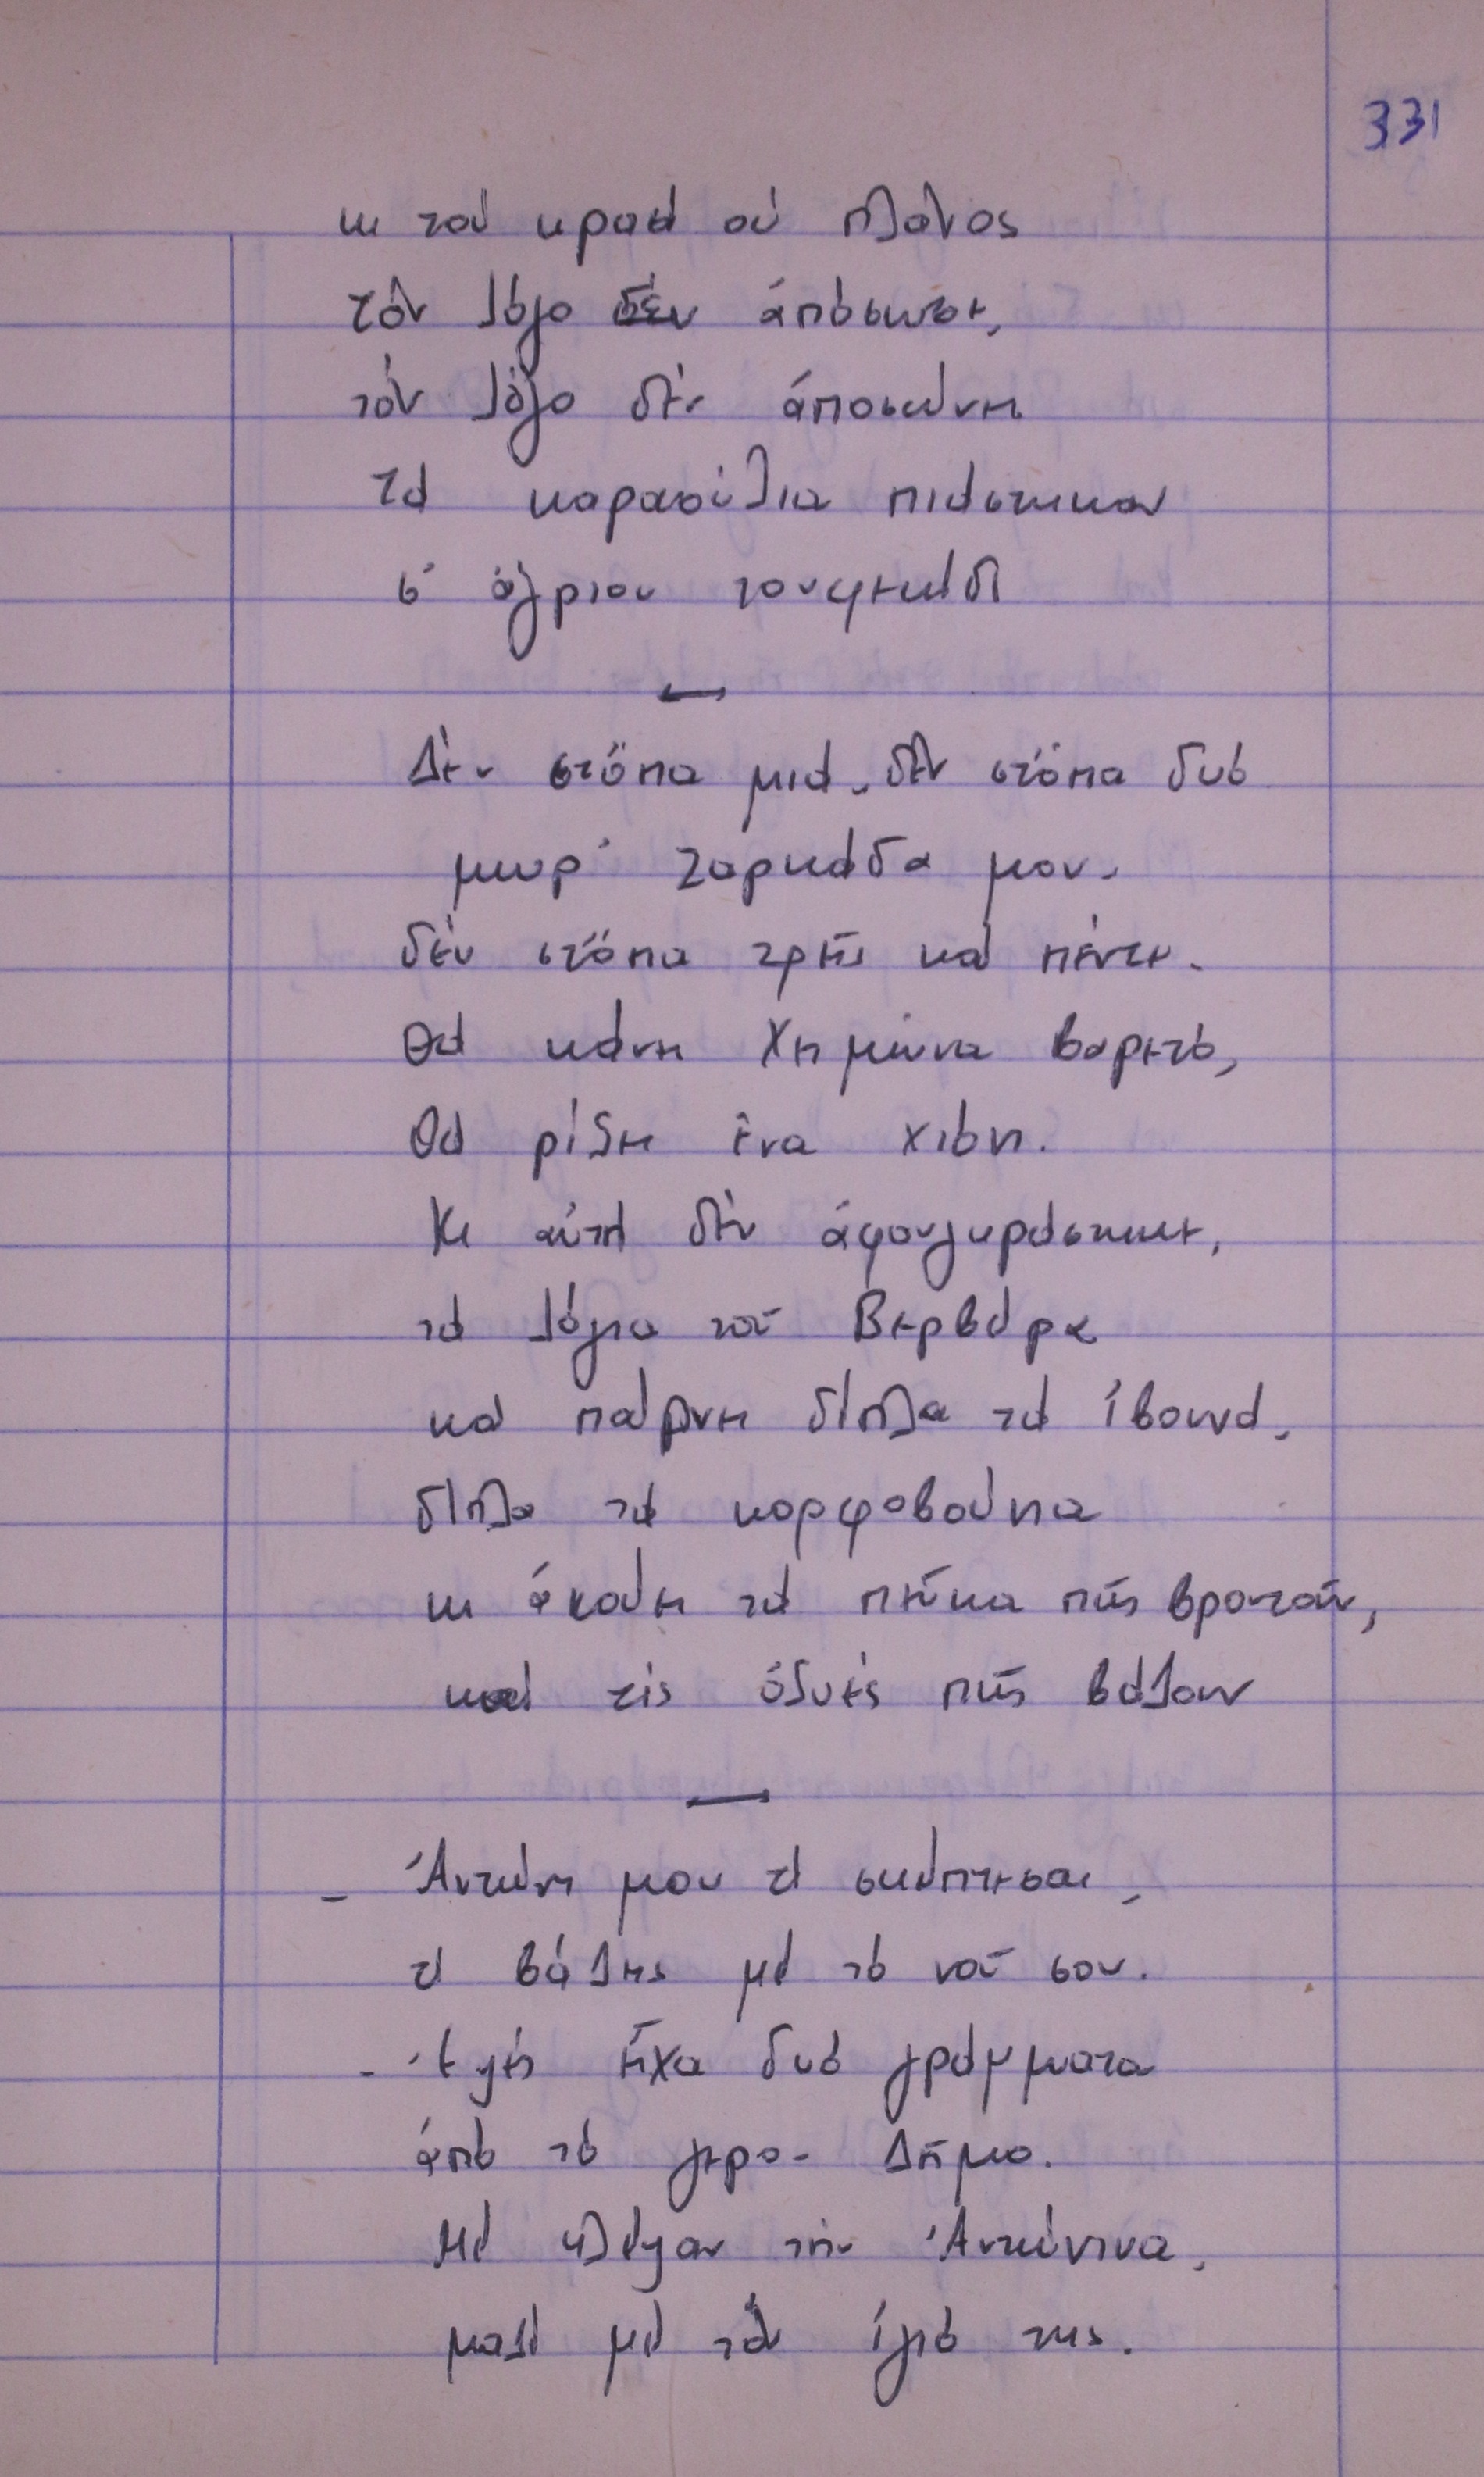 331
κι τού κρασί ού πλάνος
τόν λόγο δέν ἀπόσωσε,
τόν λόγο δέν ἀποσώνει
τά καραούλια πιάστηκαν
σ' ἄγριου τουφεκίδι
Δέν στὄπα μιά, δέν στὄπα δυό
μωρ' ζαρκάδα μου.
δέν στὄπα τρεῖς καί πέντε.
Θά κάνει Χειμῶνα βαρετό,
Θά ρίξει ἕνα χιόνι.
Κι αὐτή δέν ἀφουγκράστηκε,
τά λόγια τοῦ Βερβέρα
καί παίρνει δίπλα τά ἰβουνά,
δίπλα τά κορφοβούνια
κι ἀκούει τά πεῦκα πῶς βροντοῦν,
καί τίς ὀξυές πῶς βάζουν
- Ἀντώνη μου τί σκέπτεσαι,
τί βάζεις μέ τό νοῦ σου.
- Ἐψές εἶχα δυό γράμματα
ἀπό τό γερο-Δῆμο.
Μέ κλέψαν τήν Ἀντώνινα,
μαζί μέ τόν ἰγιό της.